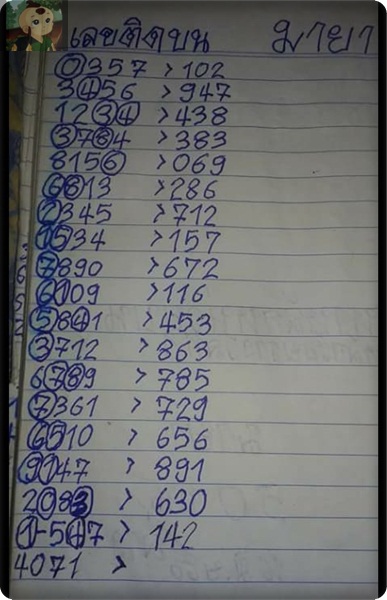 เลขติดบน มายา
0357 > 102
3456 > 947
1234 > 438
3784 > 383
8156 > 069
6813 > 286
2345 > 712
1534 > 157
7890 > 672
6109 > 116
5841 > 453
3712 > 863
6789 > 785
7361 > 729
6510 > 656
9147 > 891
2083 > 630
1-547 > 142
4071 >